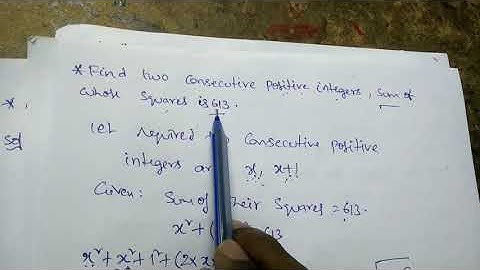 * Find two consecutive positive integers, sum of
whose squares is 613.
*,
Let required consecutive positive
Sol
integers are x, x+1
Given: Sum of their squares = 613.
x² + ( 613
x² + x² + 1² + (2x x